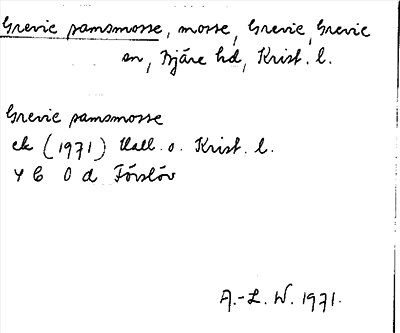 Grevie samsmosse, mosse, Grevie, Grevie
sn, Bjäre hd, Krist. l.
Grevie samsmosse
ek (1971) Hall. o. Krist. l.
4 C 0 d Förslöv
A.-L. W. 1971.